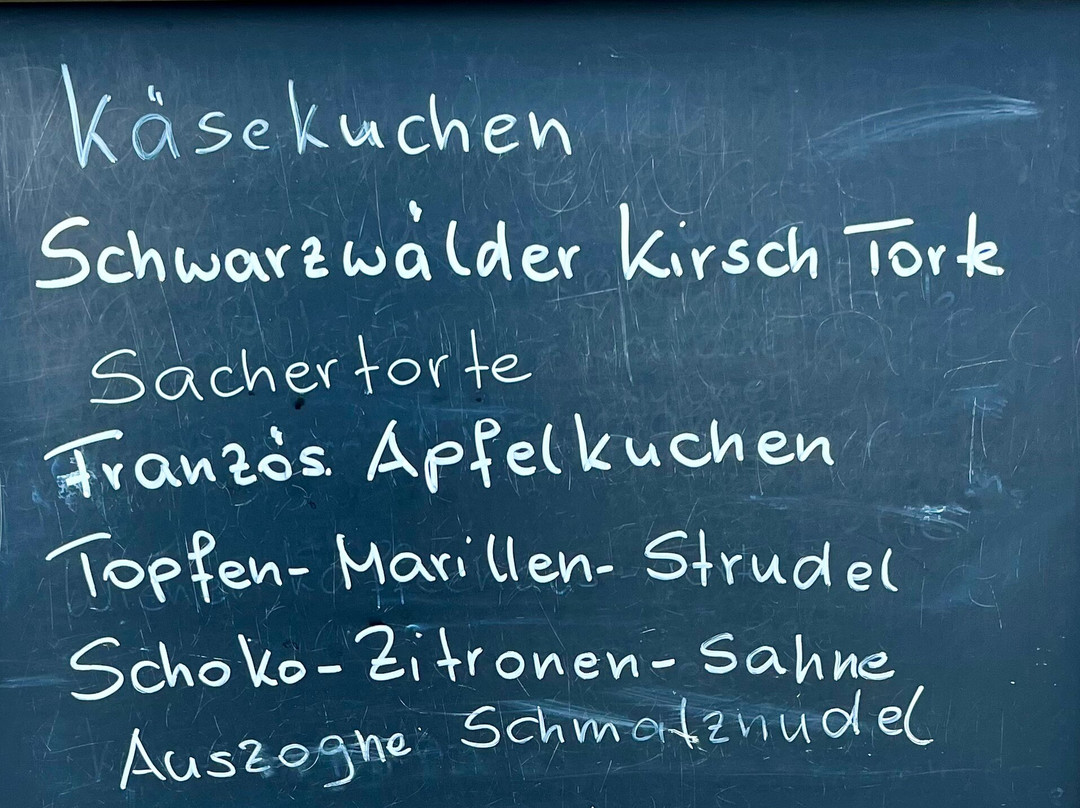 Käsekuchen
Schwarzwälder Kirsch Torte
Sachertorte
Französ. Apfelkuchen
Topfen-Marillen-Strudel
Schoko-Zitronen-Sahne
Auszogne Schmalznudel